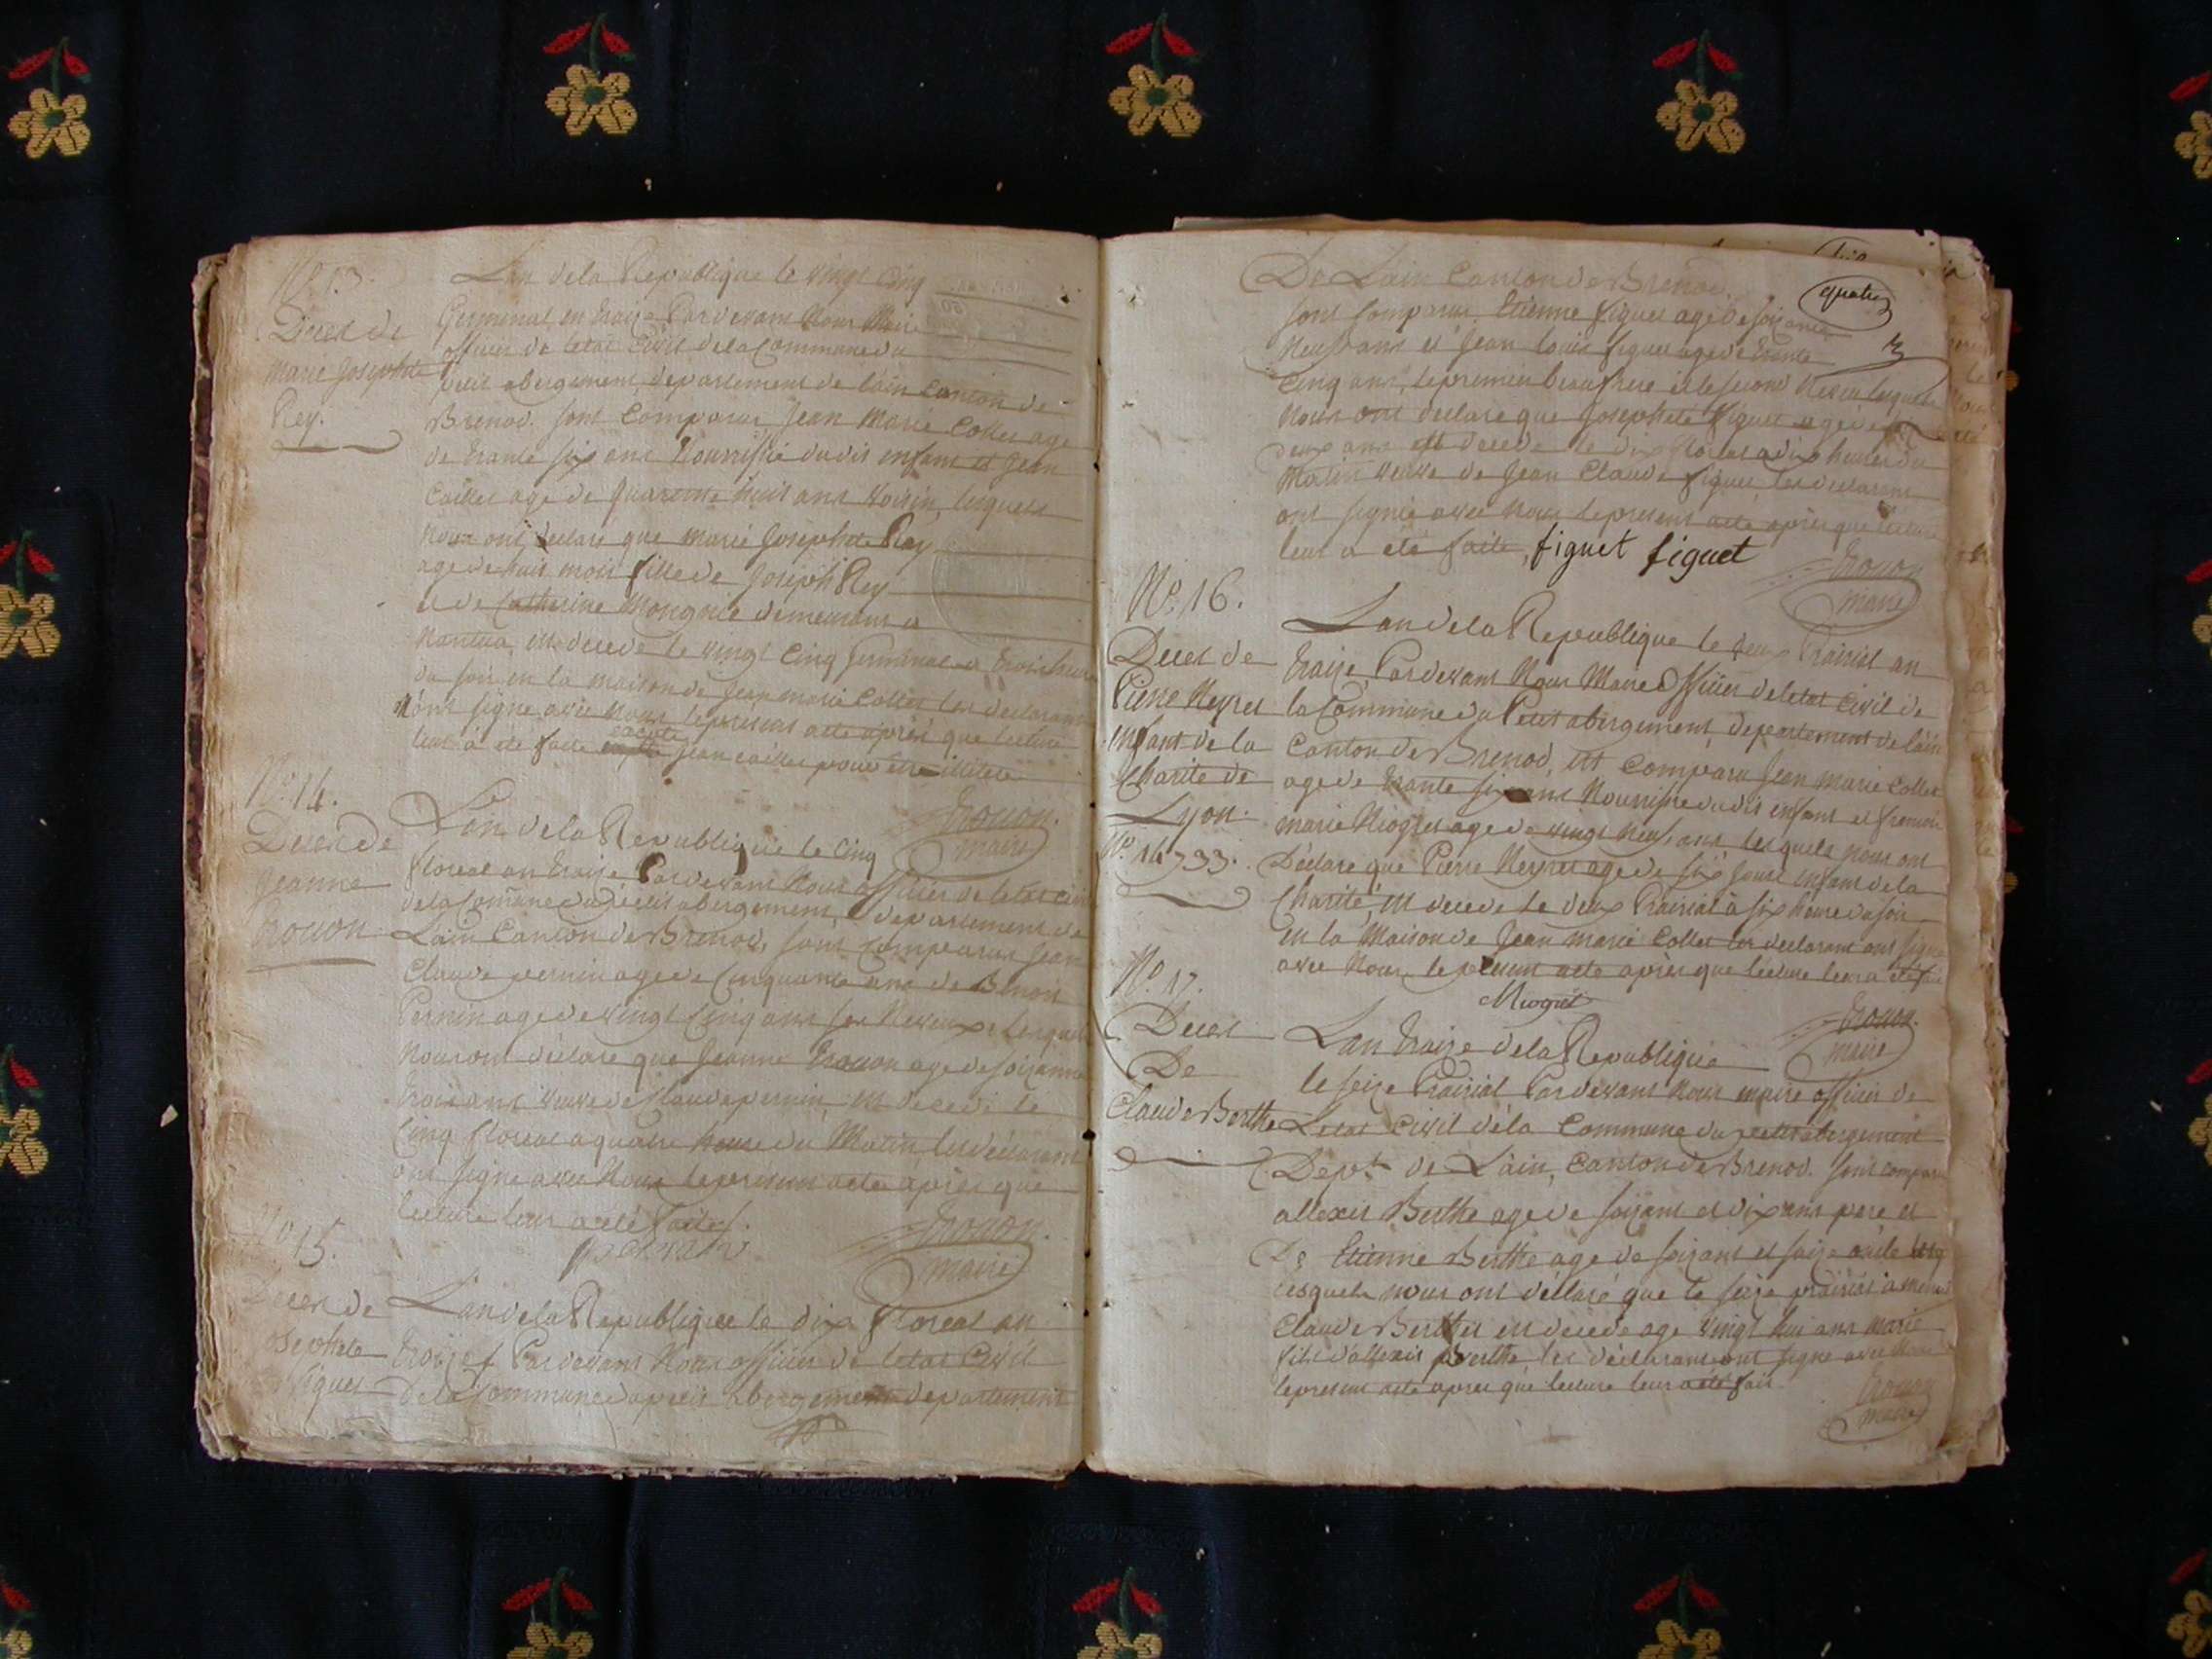 N° 13.
Deces de
Marie Josephte
Rey.
Lan de la Republique le vingt Cinq
Germinal en traize Pardevant Nous Maire
officier de letat Civil de la Commune du
petit abergement, departement de lain Canton de
Brenod. sont Comparus Jean Marie Collet age
de trante six ans Nourrissié dudit enfant et Jean
Caillet age de quarante huit ans Voisin, lesquels
Nous ont declaré que marie Josephte Rey
age de huit mois fille de Joseph Rey
et de Catherine demeurant a
Nantua, est decede le vingt Cinq Germinal a trois heure
du soir en la maison de Jean marie Collet les declarant
n'ont signe avec Nous le present acte après que lecture
leur a ete faite Jean caillet pour etre illitere
trouon.
maire
N° 14.
Deces de
Jeanne
trouon
Lan de la Republique le Cinq
floreal an traize Pardevant Nous officier de letat civil
de la Commune du petit abergement, departement de
Lain Canton de Brenod, sont comparus Jean
Claude pernin age de Cinquante ans de Benoit
Pernin age de vingt Cinq ans ses Neveux, lesquels
Nous ont declaré que Jeanne trouon age de soixante
trois ans veuve de Claude pernin, est decedé le
Cinq floreal a quatre heure du Matin, les declarant
ont signe avec Nous le present acte après que
lecture leur a eté faites.
trouon.
maire
N° 15.
Deces de
Josephete
figuet
Lan de la Republique le dix floreal an
traize Pardevant Nous officier de letat Civil
de la Commune du petit abergement departement
De Lain Canton de Brenod.
quatre
sont Comparus Etienne figuet age de soixante
Neuf ans et Jean Louis figuet age de trante
Cinq ans, le premier beaufrere et le second Neveu lesquels
Nous ont declare que Josephete figuet agé de
deux ans est decede le dix floreal a dix heures du
Matin veuve de Jean Claude figuet, les declarant
ont signé avec Nous le present acte après que lecture
leur a eté faite, figuet figuet
trouon
maire
N° 16.
Deces de
Pierre Neyret
enfant de la
Charite de
Lyon.
N° 14733.
Lan de la Republique le deux Prairial an
traize, Pardevant Nous Maire officier de letat Civil de
la Commune du Petit abergement, departement de lain
Canton de Brenod, est Comparu Jean Marie Collet
age de trante six ans Nourrissie dudit enfant et
marie Miogret age de vingt Neuf ans lesquels nous ont
Declare que Pierre Neyret age de six Jours enfant de la
Charité, est decede le deux Prairial à six heure du soir
en la Maison de Jean marie Collet les declarant ont signe
avec Nous le present acte après que lecture leur a eté fait
Miogret
trouon.
maire
N° 17.
Deces
De
Claude Berthe
Lan traize de la Republique
le seize Prairial Pardevant Nous maire officier de
Letat Civil dela Commune du petit abergement
Dept de Lain, Canton de Brenod. sont comparu
allexis Berthe age de soixant et dix ans pere et
De Etienne Berthe age de soixant et saize
lesquels nous ont declaré que le seize prairial
Claude Berthet est decede age vingt hui ans marié
fils d'allexis Berthe, les declarant ont signe avec Nous
le present acte apres que lecture leur a eté fait
trouon
maire